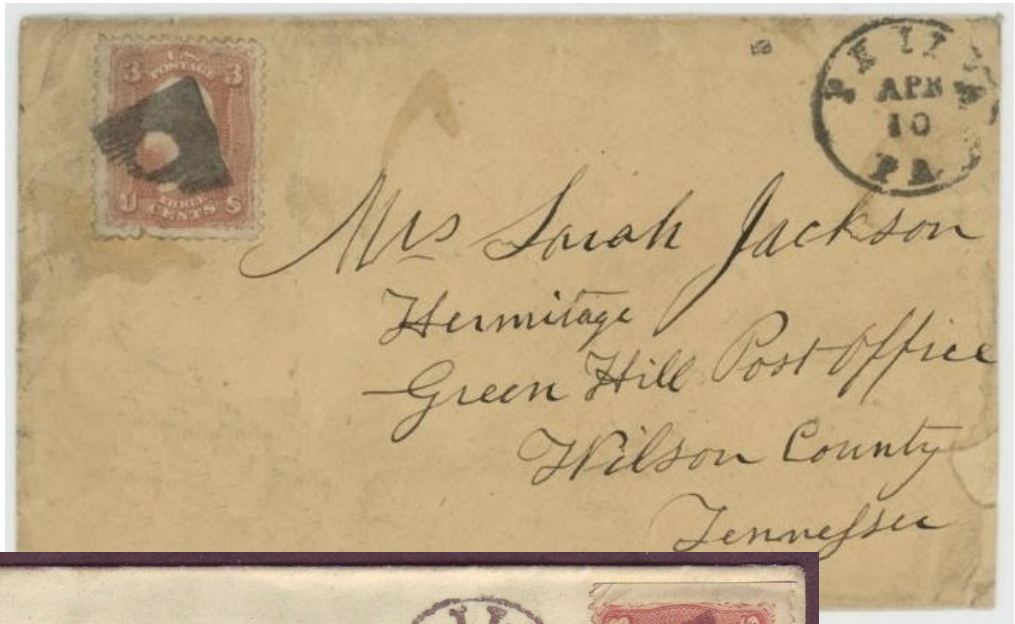 U.S. POSTAGE
3 3
U THREE CENTS S
PHILA
APR
10
PA
Mrs Sarah Jackson
Hermitage
Green Hill Post Office
Wilson County
Tennessee